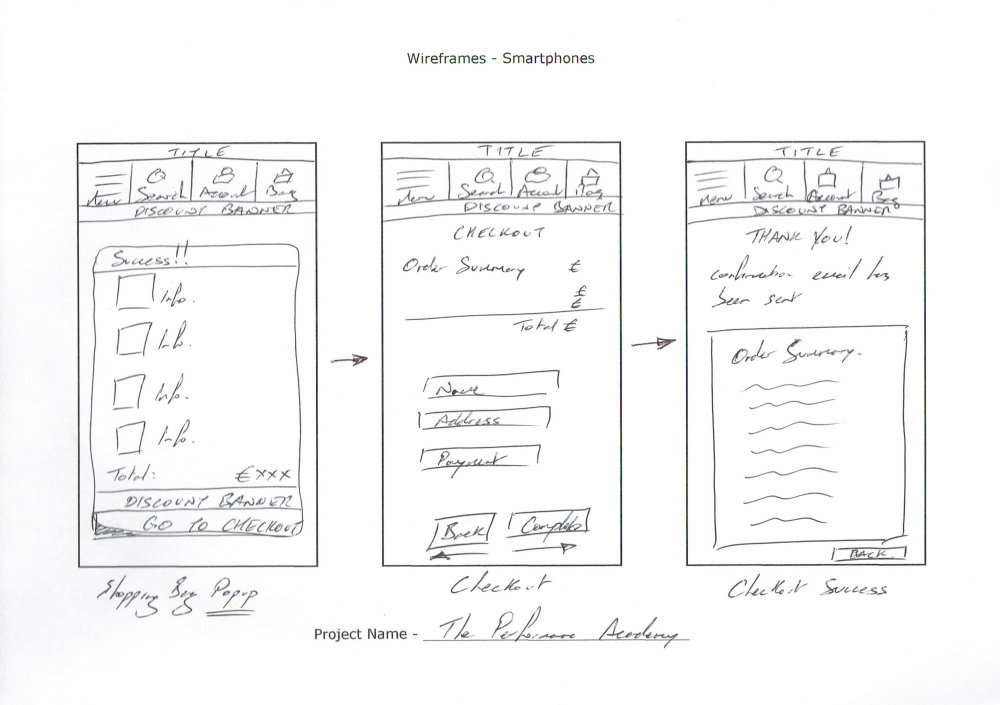 Wireframes - Smartphones
TITLE
Menu Search Account Bag
DISCOUNT BANNER
Success!!
Info.
Info.
Info.
Info.
Total: €xxx
DISCOUNT BANNER
GO TO CHECKOUT
Shopping Bag Popup
TITLE
Menu Search Account Bag
DISCOUNT BANNER
CHECKOUT
Order Summary €
€
€
Total €
Name
Address
Payment
Back Complete
Checkout
TITLE
Menu Search Account Bag
DISCOUNT BANNER
THANK YOU!
confirmation email has
been sent
Order Summary.
BACK
Checkout Success
Project Name - The Performance Academy